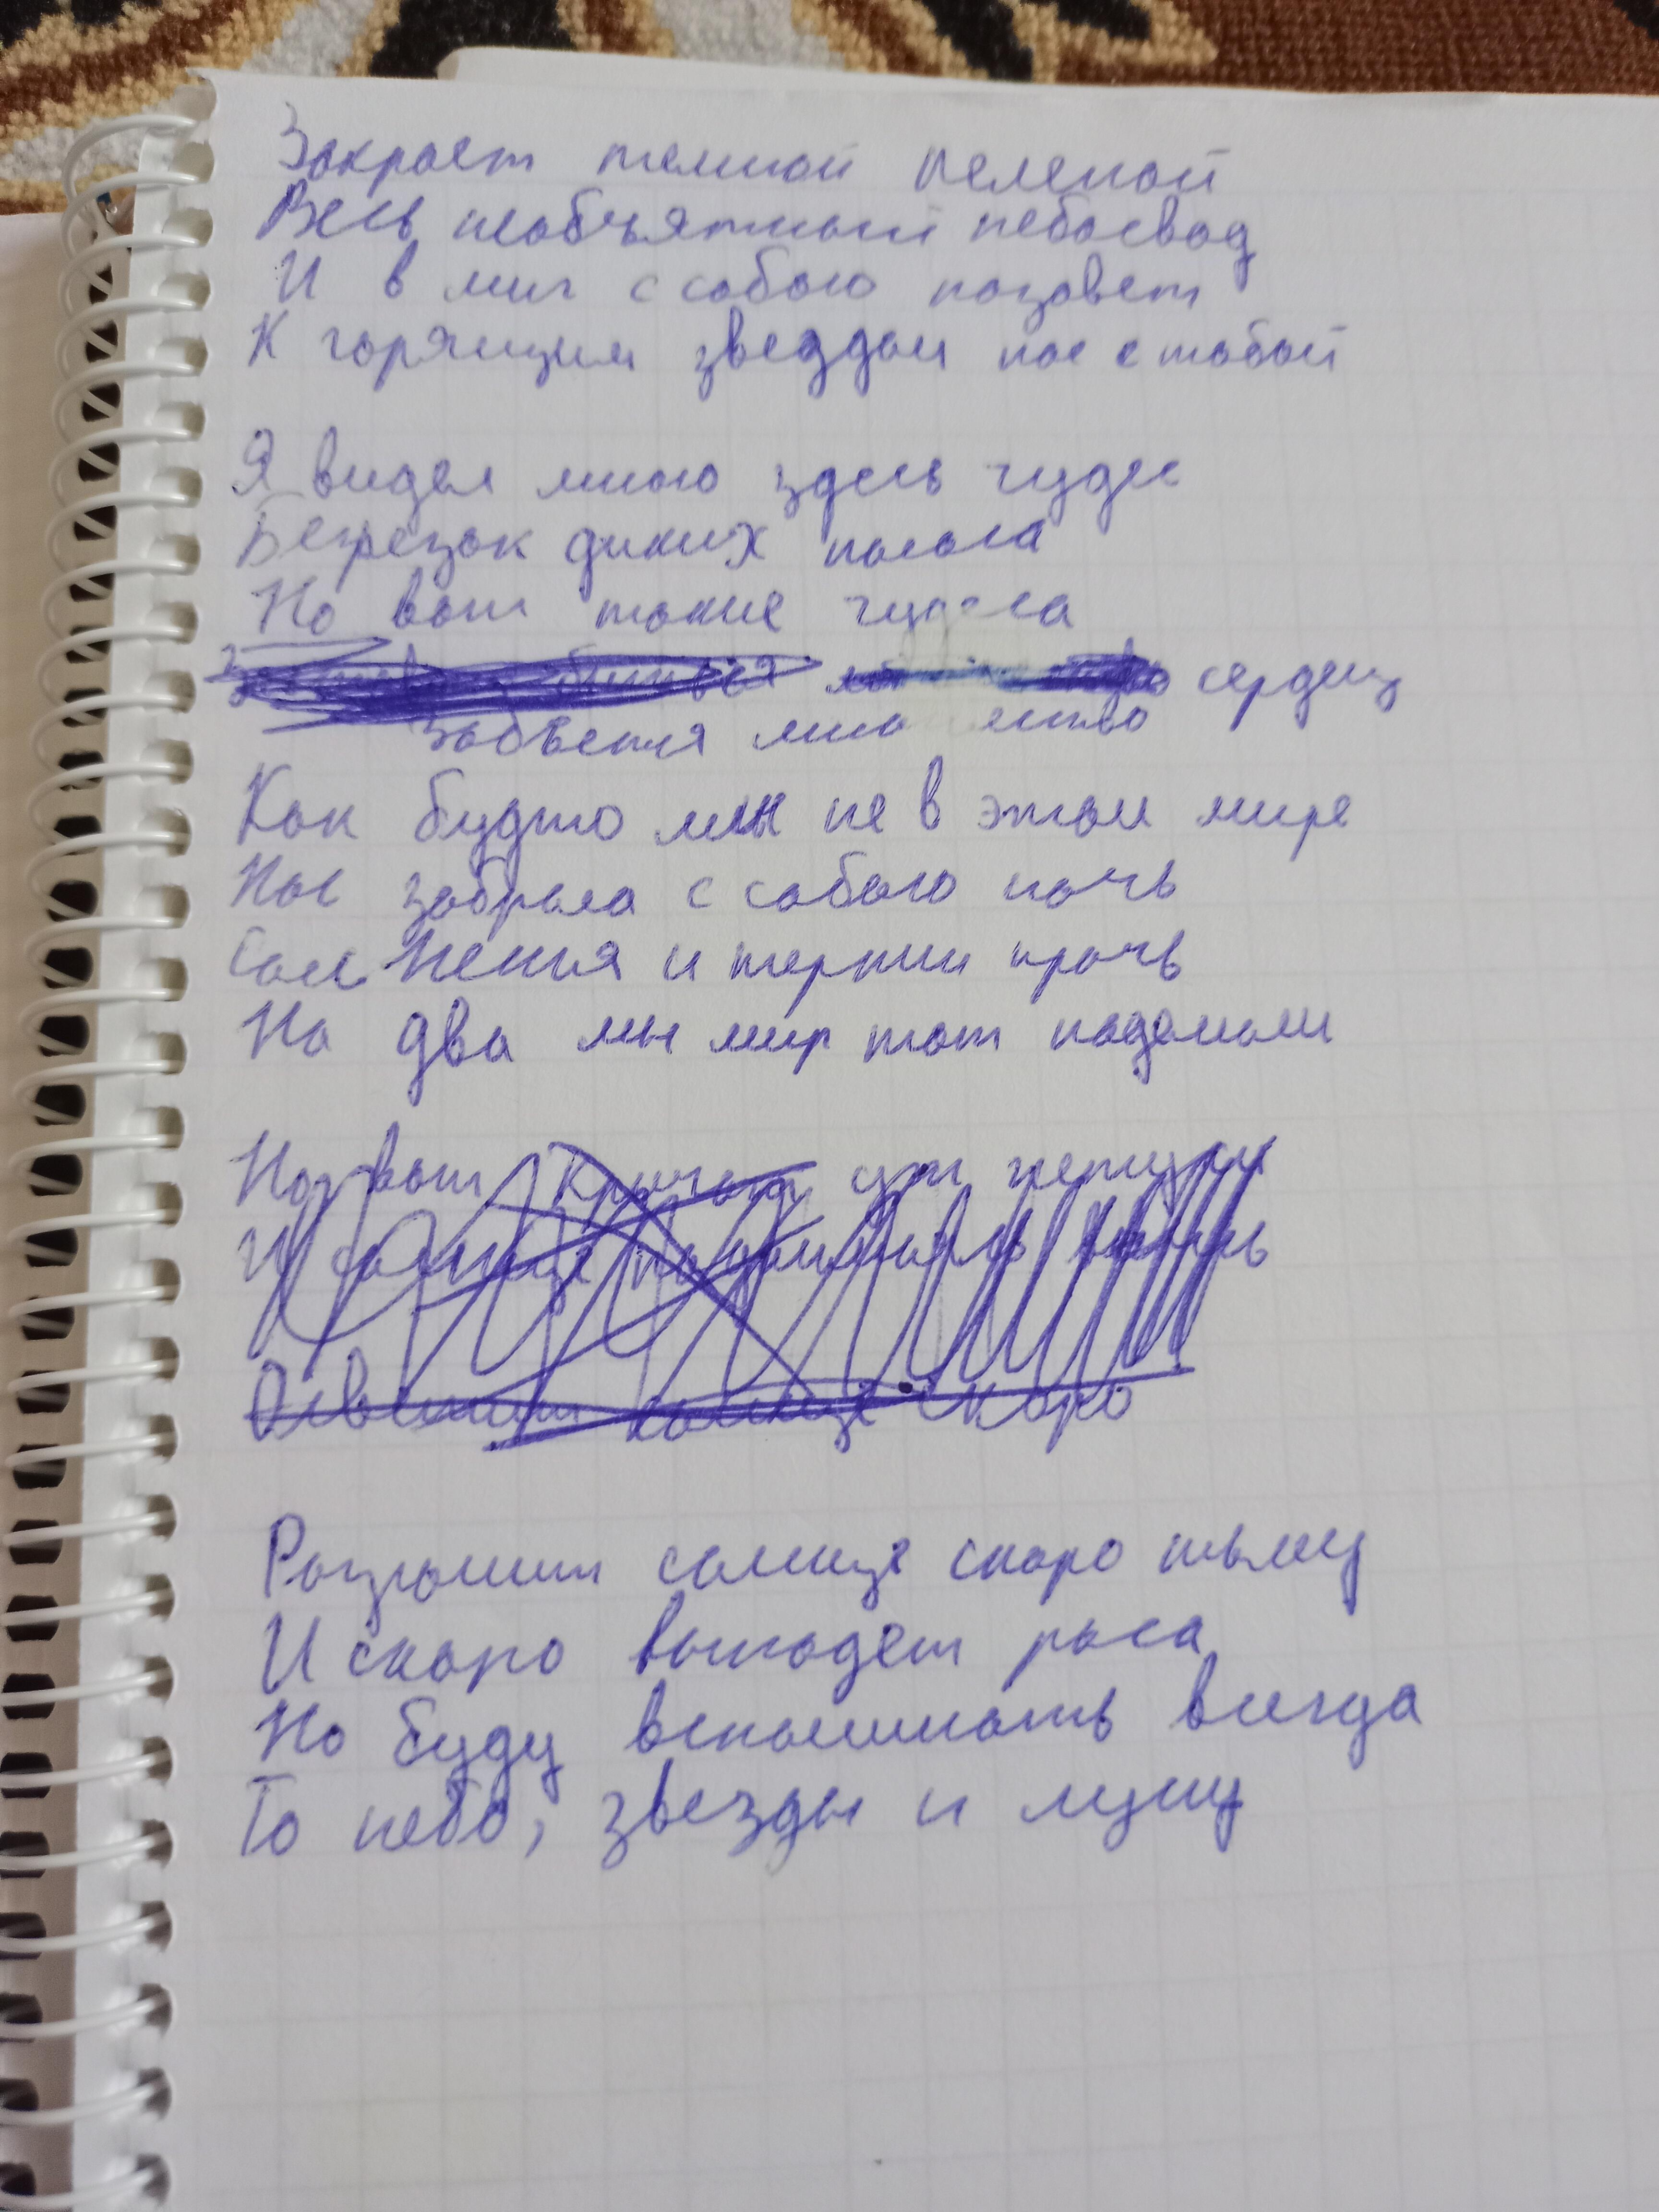 Закроет темной пеленой
Весь необъятный небосвод
И в миг с собою позовет
К горящим звездам нас с тобой
Я видел много здесь чудес
Березок диких голоса
Но вот такие чудеса
сердец
Забвения множество
Как будто мы не в этом мире
Нас забрала с собою ночь
Сомнения и терпии прочь
На два мы мир тот поделили
Но вот кричат уж петухи
И солнце
солнце скоро
Разгонит солнце скоро тьму
И скоро выпадет роса
Но буду вспоминать всегда
То небо, звезды и луну